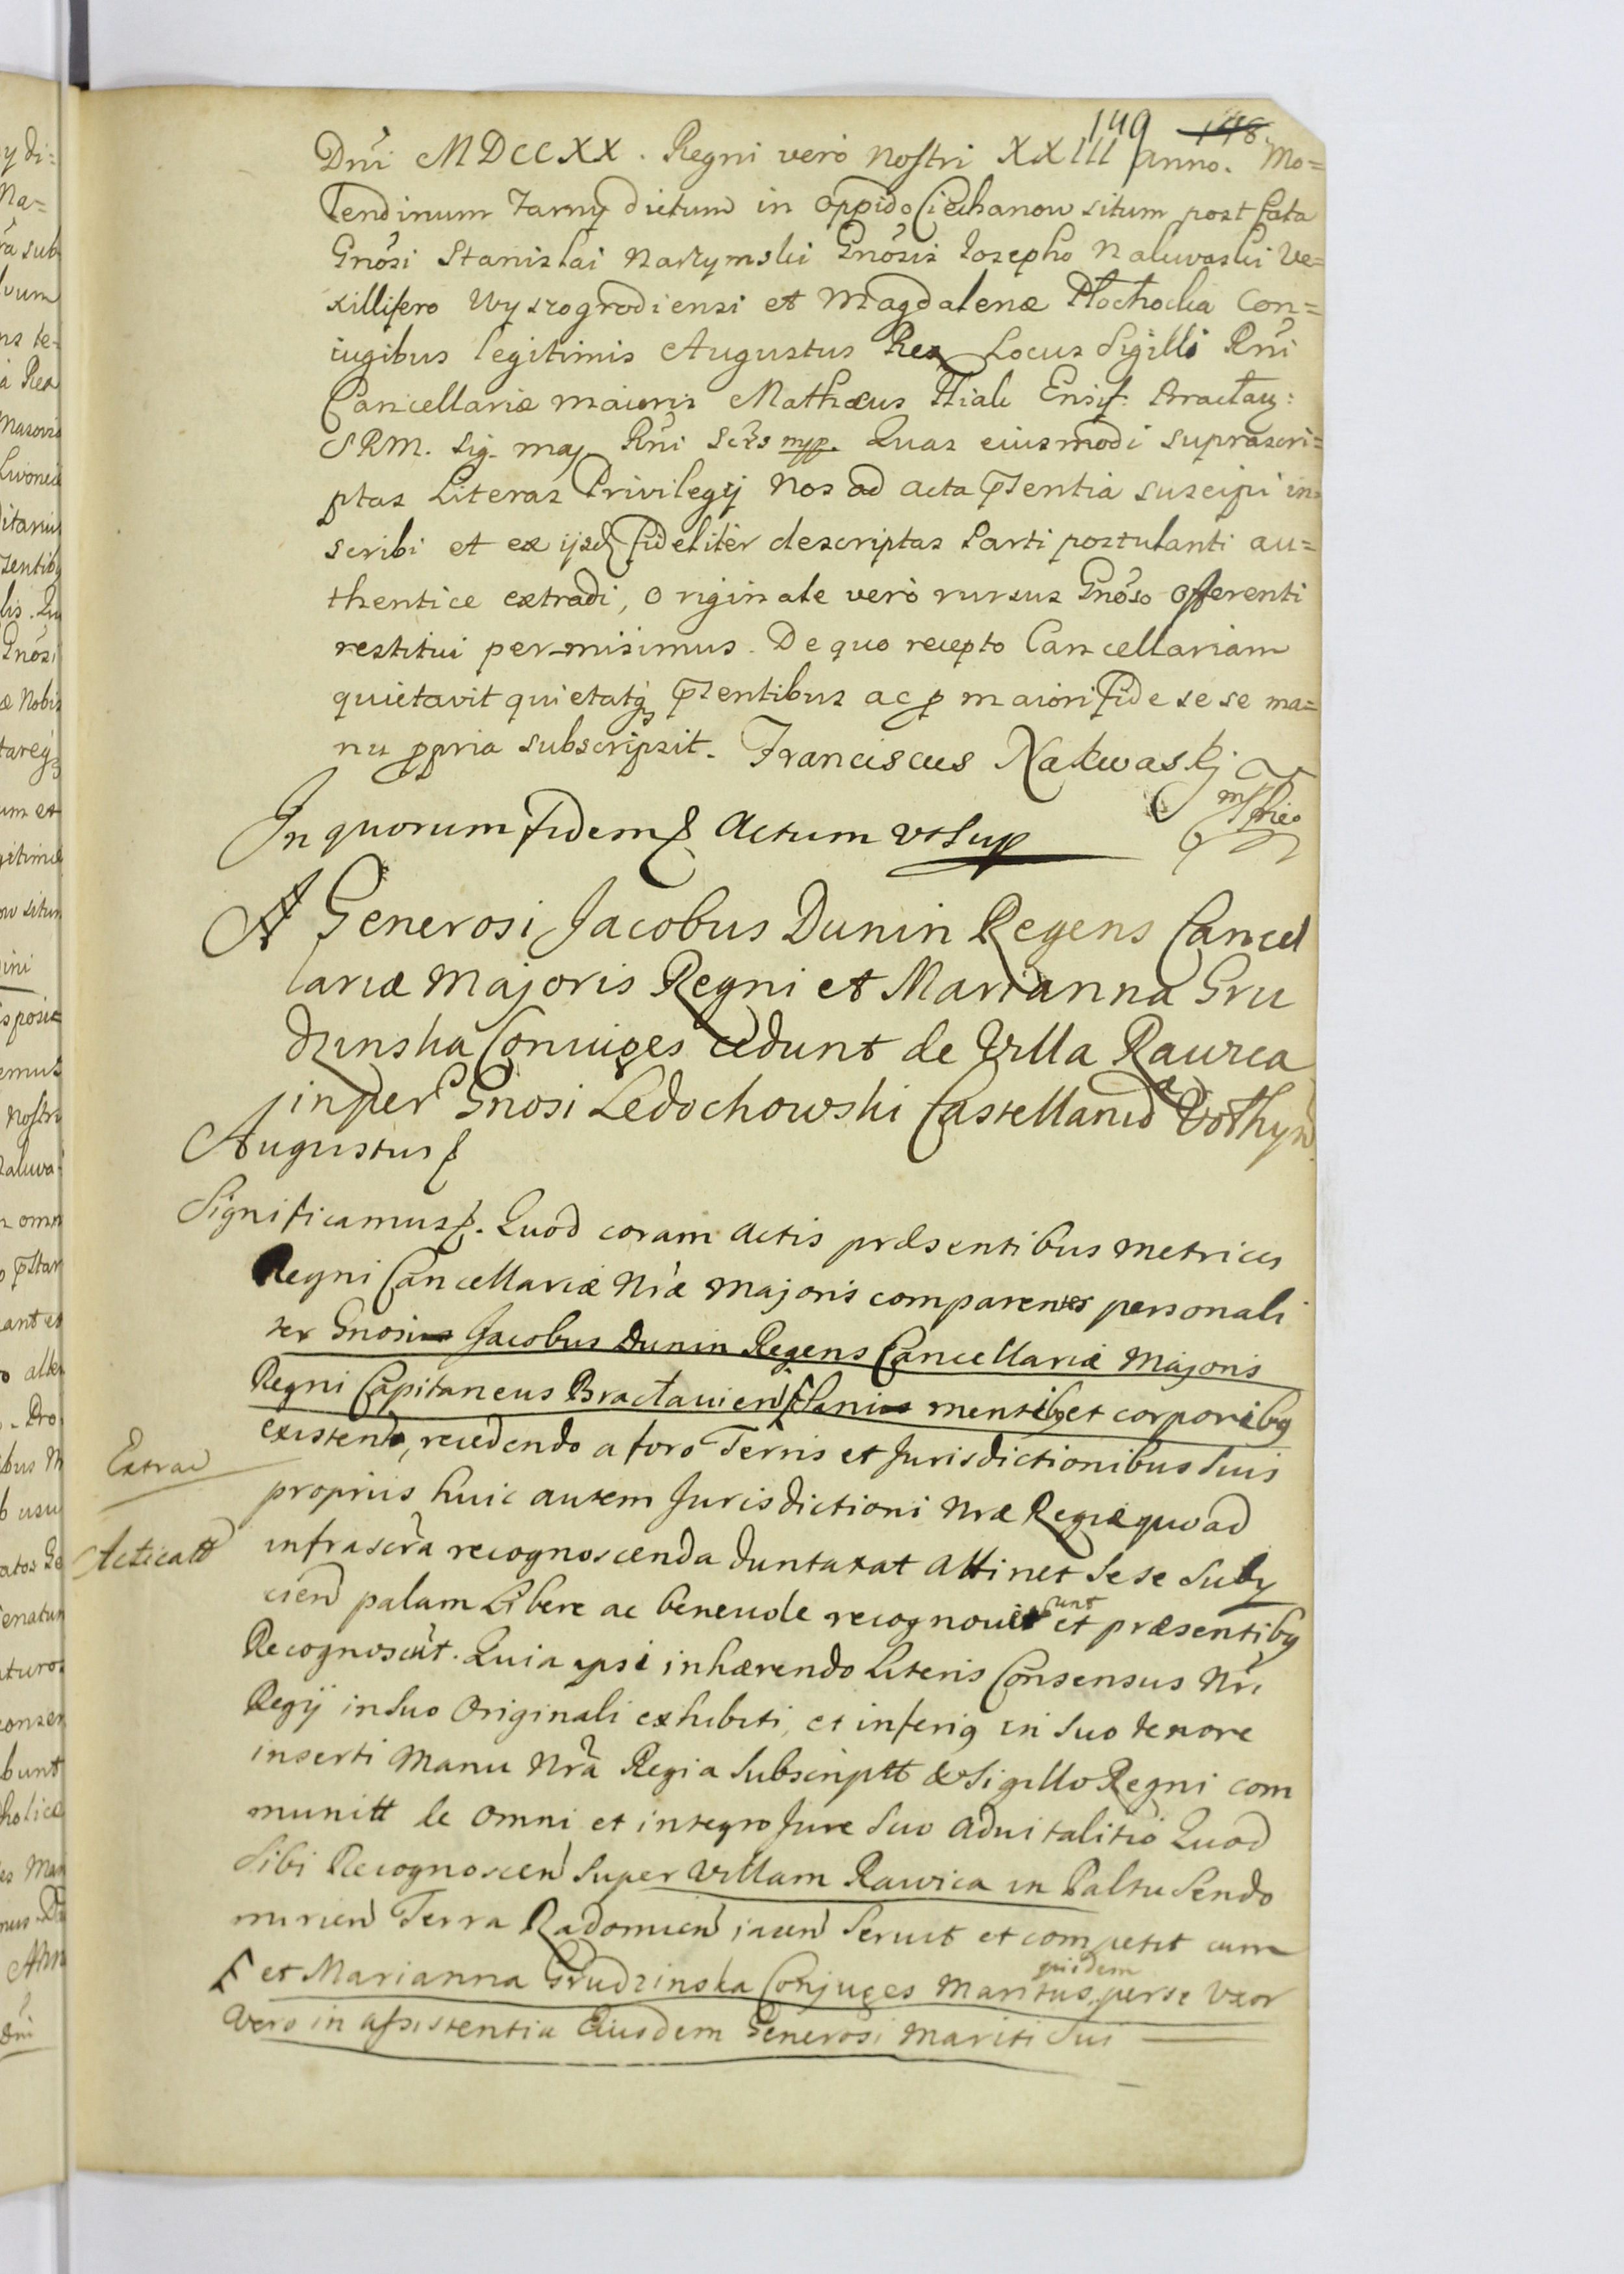 149 148.
Dńi MDCCXX. Regni verò nostri XXIII anno. Mo=
lendinum Tarny dictum in oppido Ciechanow situm post fata
Gnősi Stanislai Narzymski Gnősis Iosepho Nakwaski Ve=
xillifero Wyszogrodiensi et Magdalenæ Płochocka Con=
iugibus legitimis Augustus Rex Locus Sigilli Rńi
Cancellariæ maioris Mathæus Ensif: Bracłav:
SRM. Sig. maj. Rńi Scr̃s mpp. Quas eiusmodi suprascri=
ptas Literas Privilegij Nos ad acta p̃sentia suscipi in=
scribi et ex ijsd fideliter descriptas Parti postulanti au=
thentice extradi, originale verò rursus Gnőso offerenti
restitui permisimus. De quo recepto Cancellariam
quietavit quietatq p̃sentibus ac p maiori fide se se ma=
nu ppria subscripsit. Franciscus Nakwaskj
mp
In quorum fidem Actum vt Sup
A Generosi Jacobus Dunin Regens Cancel
lariæ Majoris Regni et Marianna Gru
dzinska Coniuges cedunt de Villa Rawica
in per Gnosi Ledochowski Castellanid Vołhyn
Augustus
Significamus. Quod coram Actis præsentibus metrices
Regni Cancellariæ Nr̃æ Majoris comparentes personali
ter Gnosius Jacobus Dunin Regens Cancellariæ Majoris
Regni Capitaneus Bracławien Sanius mentibq et corporibq
existend, recedendo a foro Terris et Jurisdictionibus Suis
Extrad
proprijs huic autem Jurisdictioni Nræ Regiæ quoad
Acticatt
infrascr̃a recognoscenda duntaxat attinet Se se Subij
ciend palam Libere ac beneuole recognouerunt et præsentibq
Recognoscũt. Quia ipsi inhærendo Literis Consensus Nr̃i
Regij in Suo Originali exhibiti, et inferiq in Suo tenore
inserti Manu Nr̃a Regia Subscriptt & Sigillo Regni com
munitt de Omni et integro Jure Suo aduitalitio Quod
Sibi Recognoscen Super Villam Rawica in Paltu Sendo
mirien Terra Radomien iacen Seruit et competit cum
F et Marianna Grudzinska Conjuges Maritus quidem per se Vxor
Vero in assistentia Eiusdem Generosi Mariti Sui